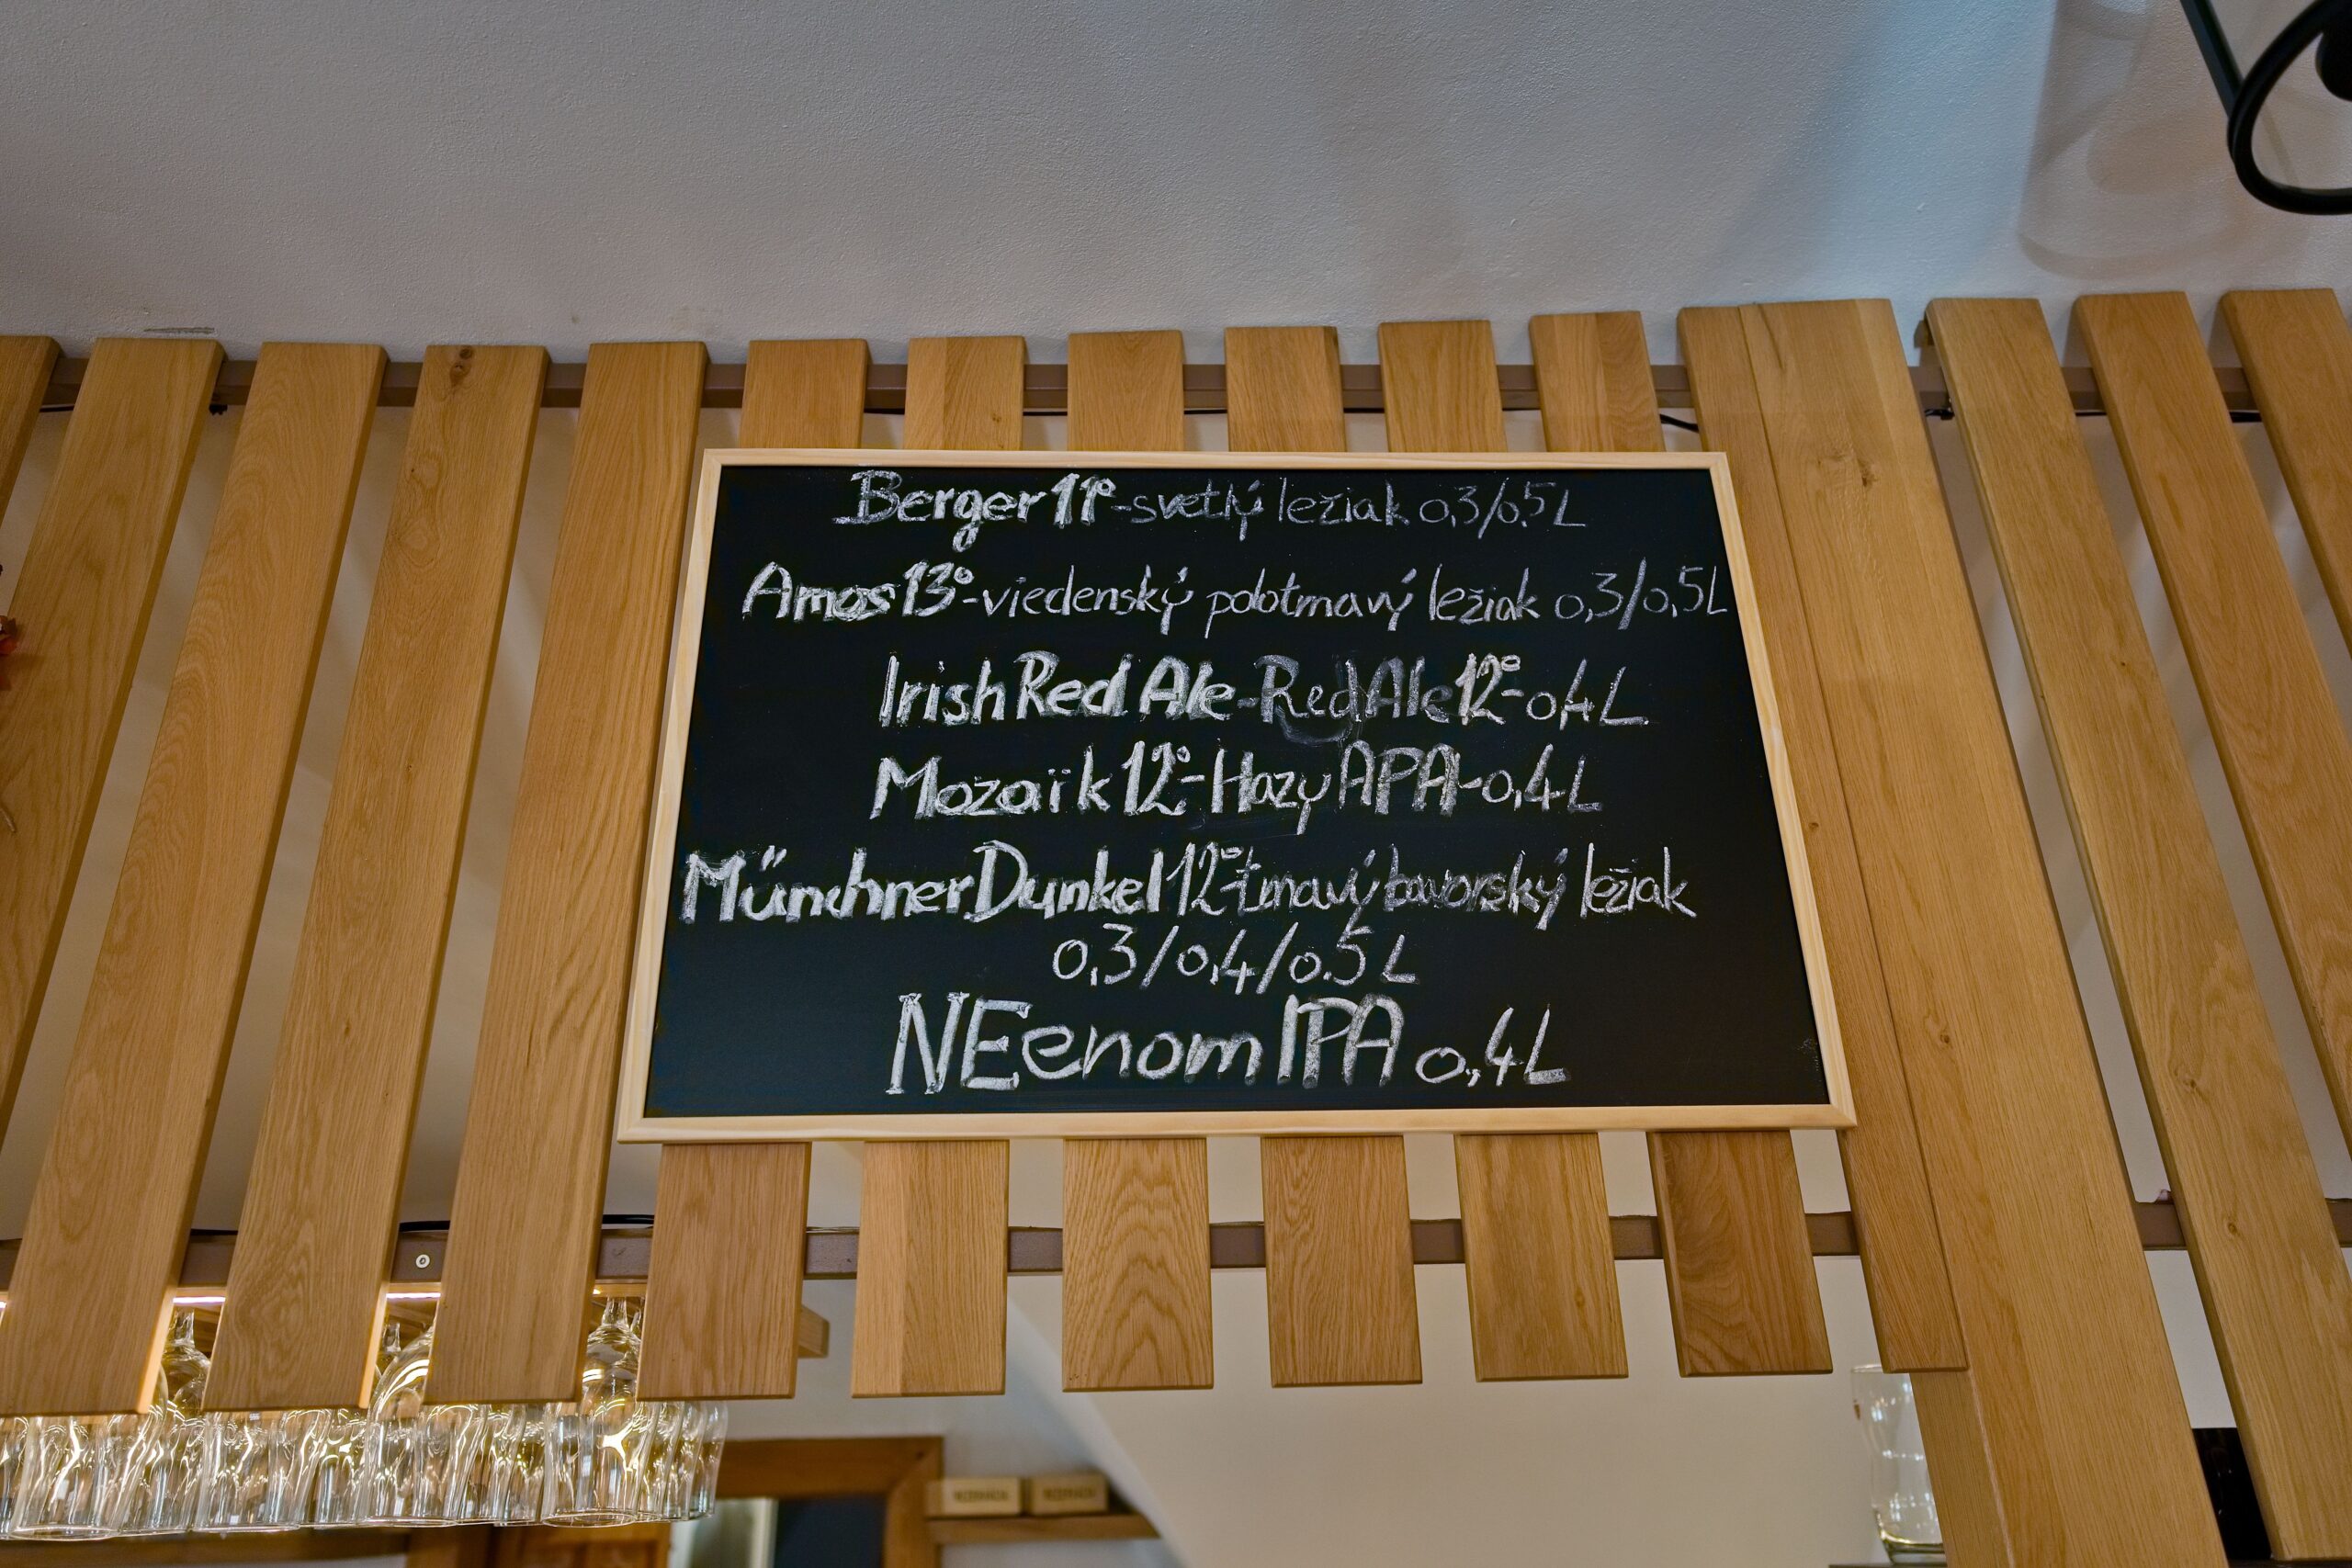 Berger 11°-svetlý ležiak 0,3/0.5L
Amos 13°-viedenský polotmavý ležiak 0,3/0,5L
Irish Red Ale-Red Ale 12°-0,4L
Mozaïk 12°-Hazy APA-0,4L
Münchner Dunkel 12°-tmavý bavorský ležiak
0,3/0,4/0.5L
NEenom IPA 0,4L